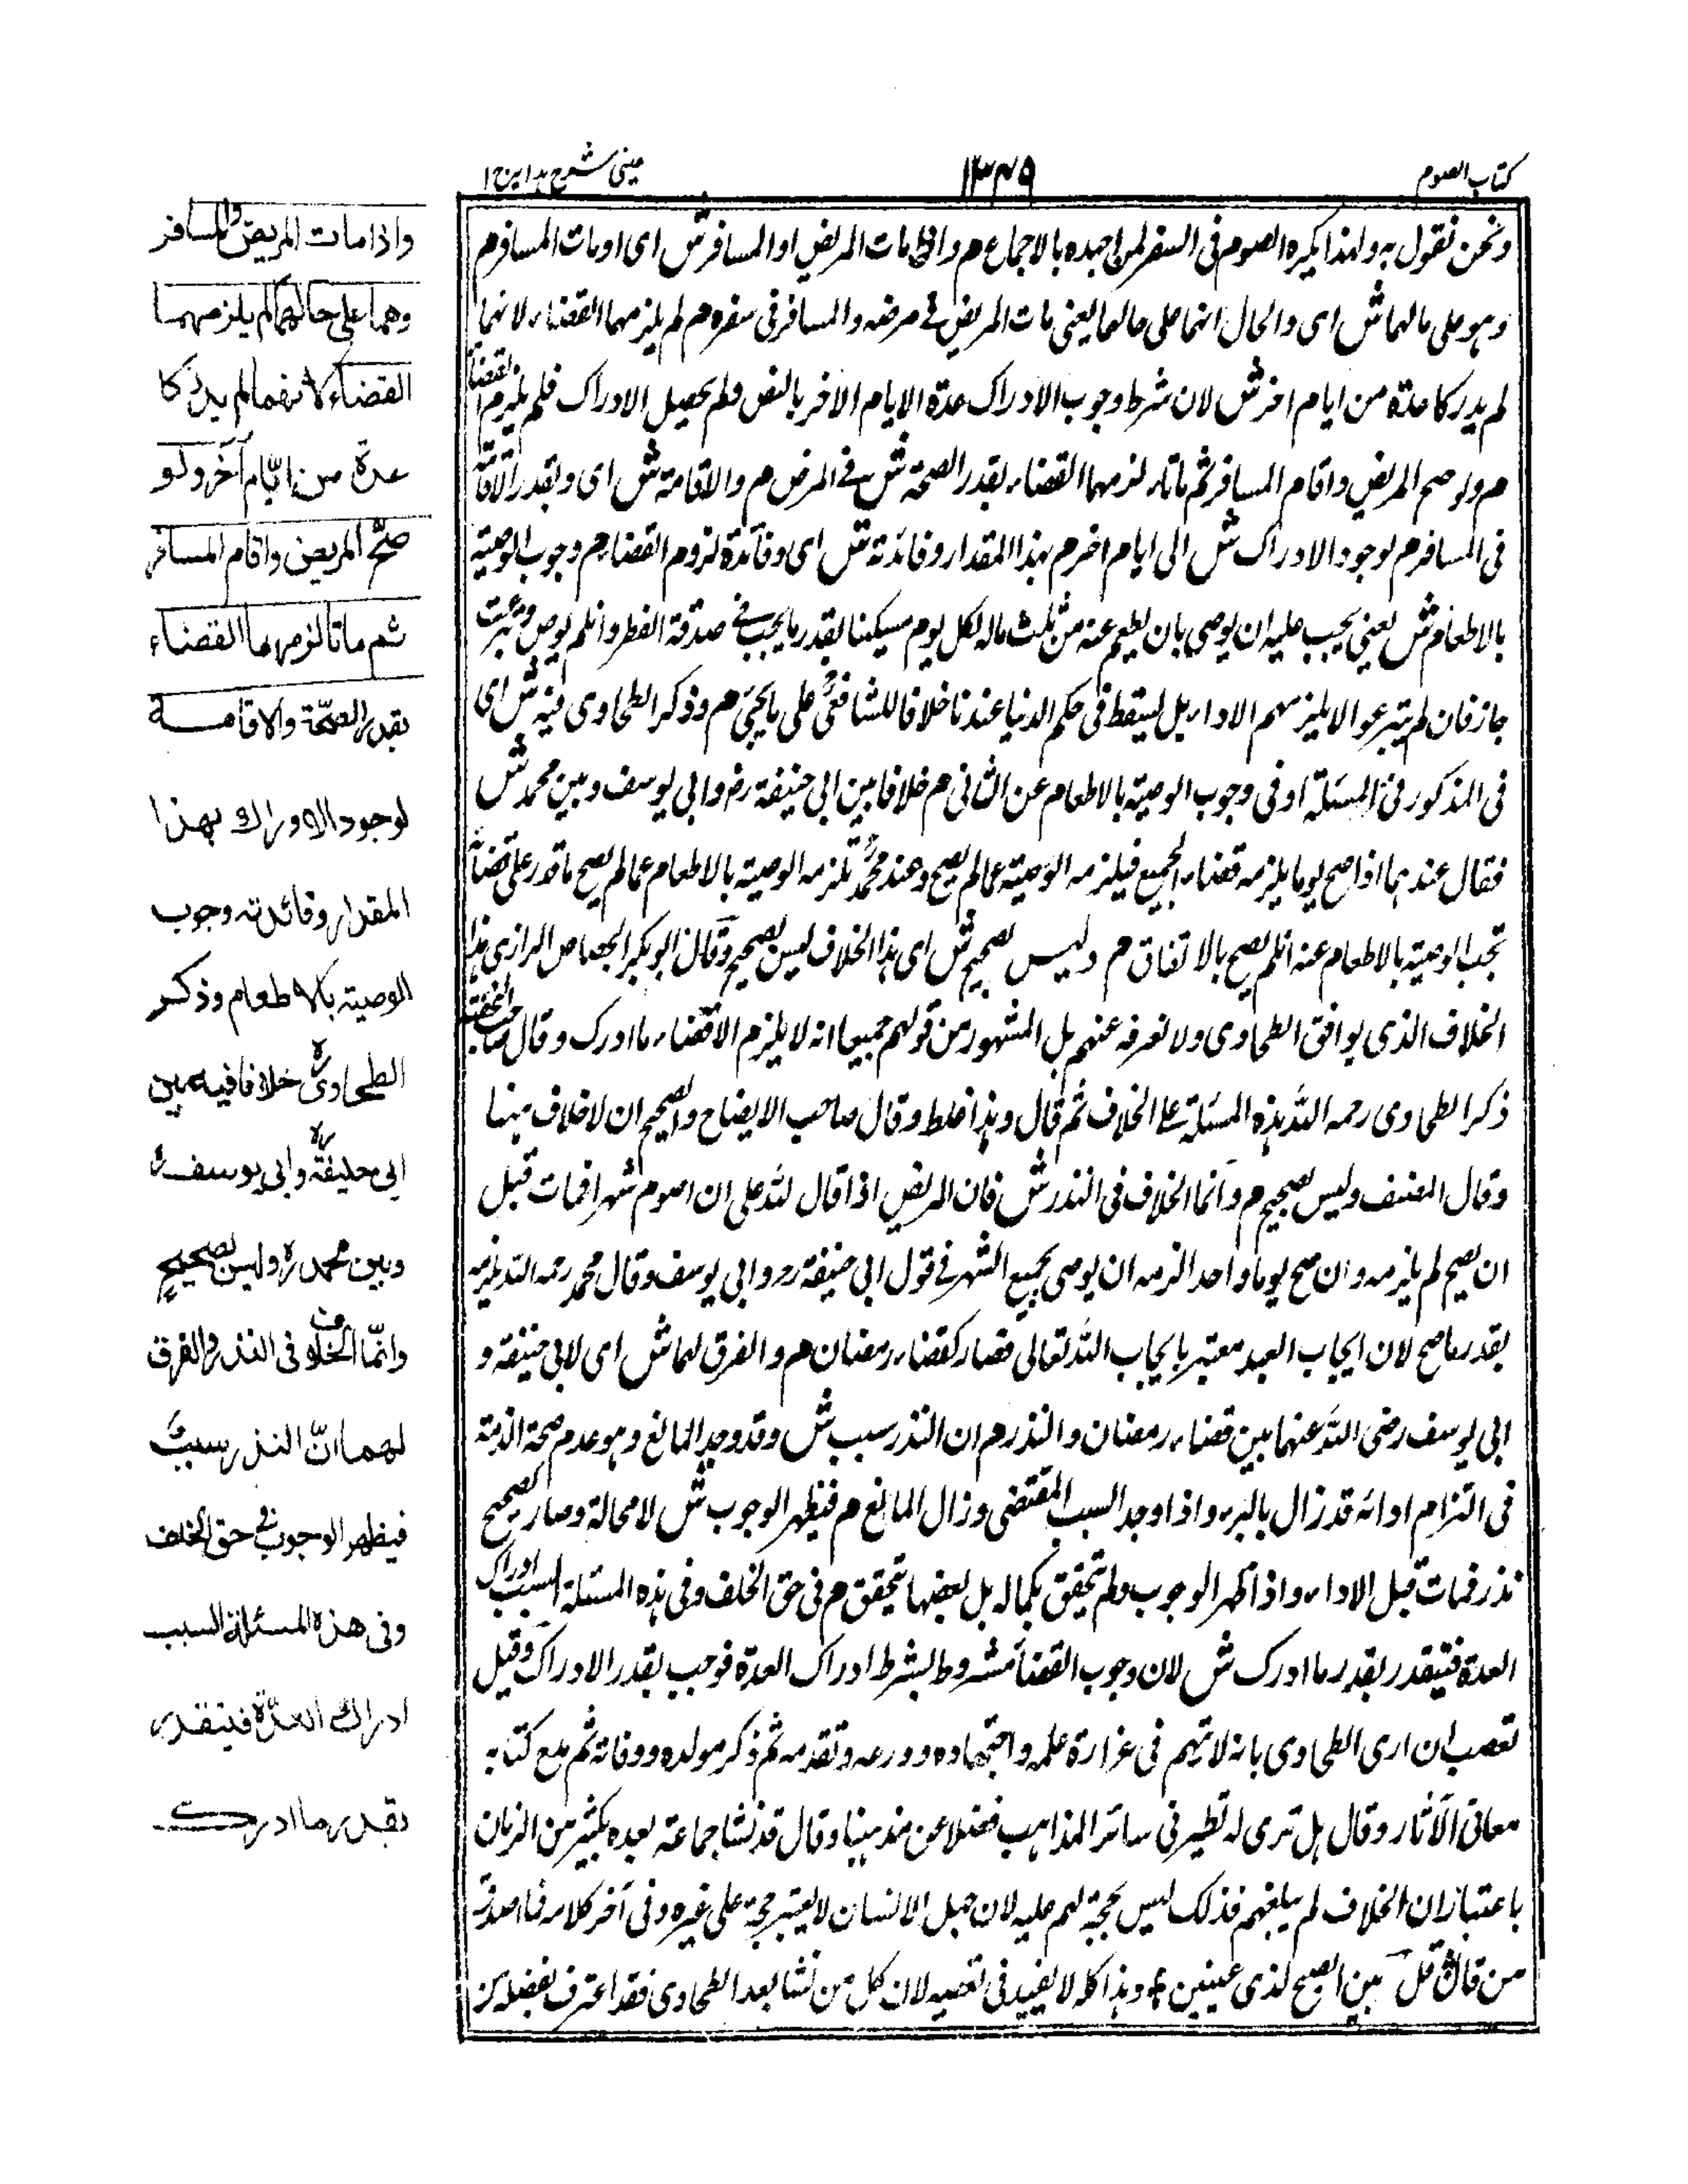 كتاب الصوم
١٣٤٥
عينى شرح هدايه ج ١
ونحن نقول به ولهذا يكره الصوم فى السفر لمن اجهده بالاجماع م واذا مات المريض او المسافر ش اى او مات المسافر م
وهو على حالهما ش اى والحال انهما على حالهما يعنى مات المريض فى مرضه والمسافر فى سفره م لم يلزمهما القضاء لانهما
لم يدركا عدة من ايام اخر ش لان شرط وجوب الادراك عدة الايام الاخر بالنص ولم يحصل الادراك فلم يلزم القضاء
م ولو صح المريض واقام المسافر ثم ماتا لزمهما القضاء بقدر الصحة ش فى المرض م والاقامة ش اى وبقدر الاقامة
فى المسافر م لوجود الادراك ش الى ايام اخر م بهذا المقدار وفائدته ش اى وفائدة لزوم القضاء م وجوب الوصية
بالاطعام ش يعنى يجب عليه ان يوصى بان يطعم عنه من ثلث ماله لكل يوم مسكينا بقدر ما يجب فى صدقة الفطر وانلم يوص وتبرعت
جاز فان لم يتبرعوا لا يلزمهم الاداء بل يسقط فى حكم الدنيا عندنا خلافا للشافعى على ما يجئ م وذكر الطحاوى فيه ش اى
فى المذكور فى المسئلة او فى وجوب الوصية بالاطعام عن الثانى م خلافا بين ابى حنيفة رض وابى يوسف وبين محمد ش
فقال عندهما اذا صح يوما يلزمه قضاء الجميع فيلزمه الوصية عما لم يصح وعند محمد تلزمه الوصية بالاطعام عما لم يصح ما قدر على قضاء
تجب الوصية بالاطعام عنه انلم يصح بالاتفاق م وليس بصحيح ش اى هذا الخلاف ليس بصحيح وقال ابو بكر الجصاص الرازى هذا
الخلاف الذى يوافق الطحاوى ولا نعرفه عنهم بل المشهور من قولهم جميعا انه لا يلزم الا قضاء ما ادرك وقال صاحب التحفة
ذكر الطحاوى رحمه الله هذه المسئلة على الخلاف ثم قال وهذا غلط وقال صاحب الايضاح والصحيح ان لا خلاف هنا
وقال المصنف وليس بصحيح م وانما الخلاف فى النذر ش فان المريض اذا قال لله على ان اصوم شهرا فمات قبل
ان يصح لم يلزمه وان صح يوما واحدا لزمه ان يوصى بجميع الشهر فى قول ابى حنيفة رح وابى يوسف وقال محمد رحمه الله يلزمه
بقدر ما صح لان ايجاب العبد معتبر بايجاب الله تعالى فصار كقضاء رمضان م والفرق لهما ش اى لابى حنيفة و
ابى يوسف رضى الله عنهما بين قضاء رمضان والنذر م ان النذر سبب ش وقد وجد المانع وهو عدم صحة الذمة
فى التزام ادائه قد زال بالبرء واذا وجد السبب المقتضى وزال المانع م فيظهر الوجوب ش لا محالة وصار كصحيح
نذر فمات قبل الاداء واذا ظهر الوجوب ولم تتحقق بكماله بل بعضها تتحقق م فى حق الخلف وفى هذه المسئلة السبب ادراك
العدة فيتقدر بقدر ما ادرك ش لان وجوب القضاء مشروط بشرط ادراك العدة فوجب بقدر الادراك وقيل
تعصب الاترارى الطحاوى بانه لا يتهم فى غزارة علمه واجتهاده وورعه وتقدمه ثم ذكر مولده ووفاته ثم مدح كتابه
معانى الآثار وقال هل ترى له نظير فى سائر المذاهب فضلا عن مذهبنا وقال قد نشا جماعة بعده بكثير من الزمان
باعتبار ان الخلاف لم يبلغهم فذلك ليس بحجة لهم عليه لان جهل الانسان لا يعتبر حجة على غيره وفى آخر كلامه فما اصدق
من قال ع قد بين الصبح لذى عينين وهذا كله لا يفيد فى تعصبه لان كل من نشا بعد الطحاوى فقد اعترف بفضله
واذا مات المريض والمسافر
وهما على حالهما لم يلزمهما
القضاء لانهما لم يدركا
عدة من ايّام اُخَر ولو
صحّ المريض واقام المسافر
ثم ماتا لزمهما القضاء
بقدر الصحّة والاقامة
لوجود الادراك بهذا
المقدار وفائدته وجوب
الوصية بالاطعام وذكر
الطحاوىؒ خلافا فيه بين
ابى حنيفةؒ وابى يوسفؒ
وبين محمدؒ وليس بصحيحٍ
وانّما الخلاف فى النذر والفرق
لهما انّ النذر سببٌ
فيظهر الوجوب فى حق الخلف
وفى هذه المسئلة السبب
ادراك العدّة فيتقدر
بقدر ما ادرك